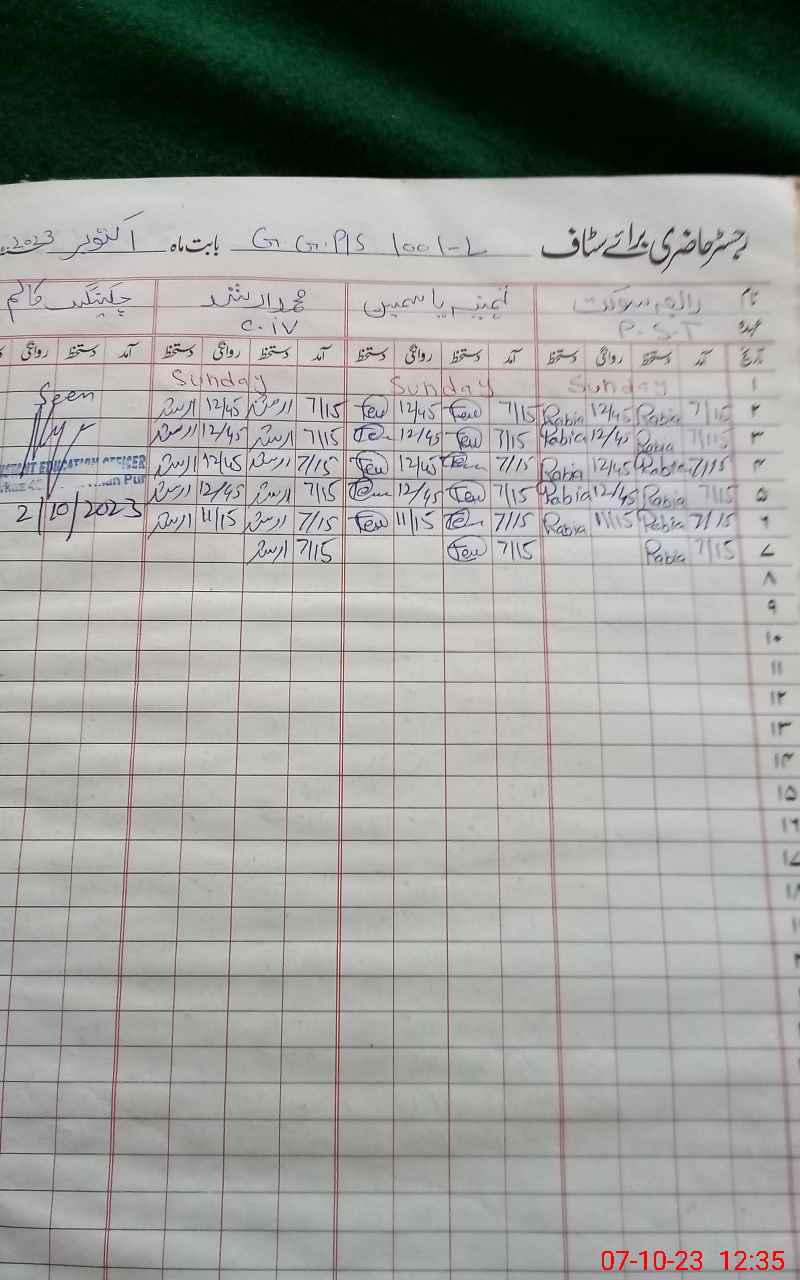 رجسٹر حاضری برائے سٹاف G.G.P/S 100/1-L بابت ماہ اکتوبر 2023
نام رابعہ شوکت ثمینہ یاسمین محمد ارشد چیکنگ کالم
عہدہ P.S.T C.iv
تاریخ آمد دستخط روانگی دستخط آمد دستخط روانگی دستخط آمد دستخط روانگی دستخط آمد دستخط روانگی
۱ Sunday Sunday Sunday
۲ 7/15 Rabia 12/45 Rabia 7/15 12/45 7/15 ارشد 12/45 ارشد Seen
۳ 7/15 Rabia 12/45 Rabia 7/15 12/45 7/15 ارشد 12/45 ارشد
۴ 7/15 Rabia 12/45 Rabia 7/15 12/45 7/15 ارشد 12/45 ارشد EDUCATION OFFICER
۵ 7/15 Rabia 12/45 Rabia 7/15 12/45 7/15 ارشد 12/45 ارشد
۶ 7/15 Rabia 11/15 Rabia 7/15 11/15 7/15 ارشد 11/15 ارشد 2/10/2023
۷ 7/15 Rabia 7/15 7/15 ارشد
۸
۹
۱۰
۱۱
۱۲
۱۳
۱۴
۱۵
۱۶
07-10-23 12:35